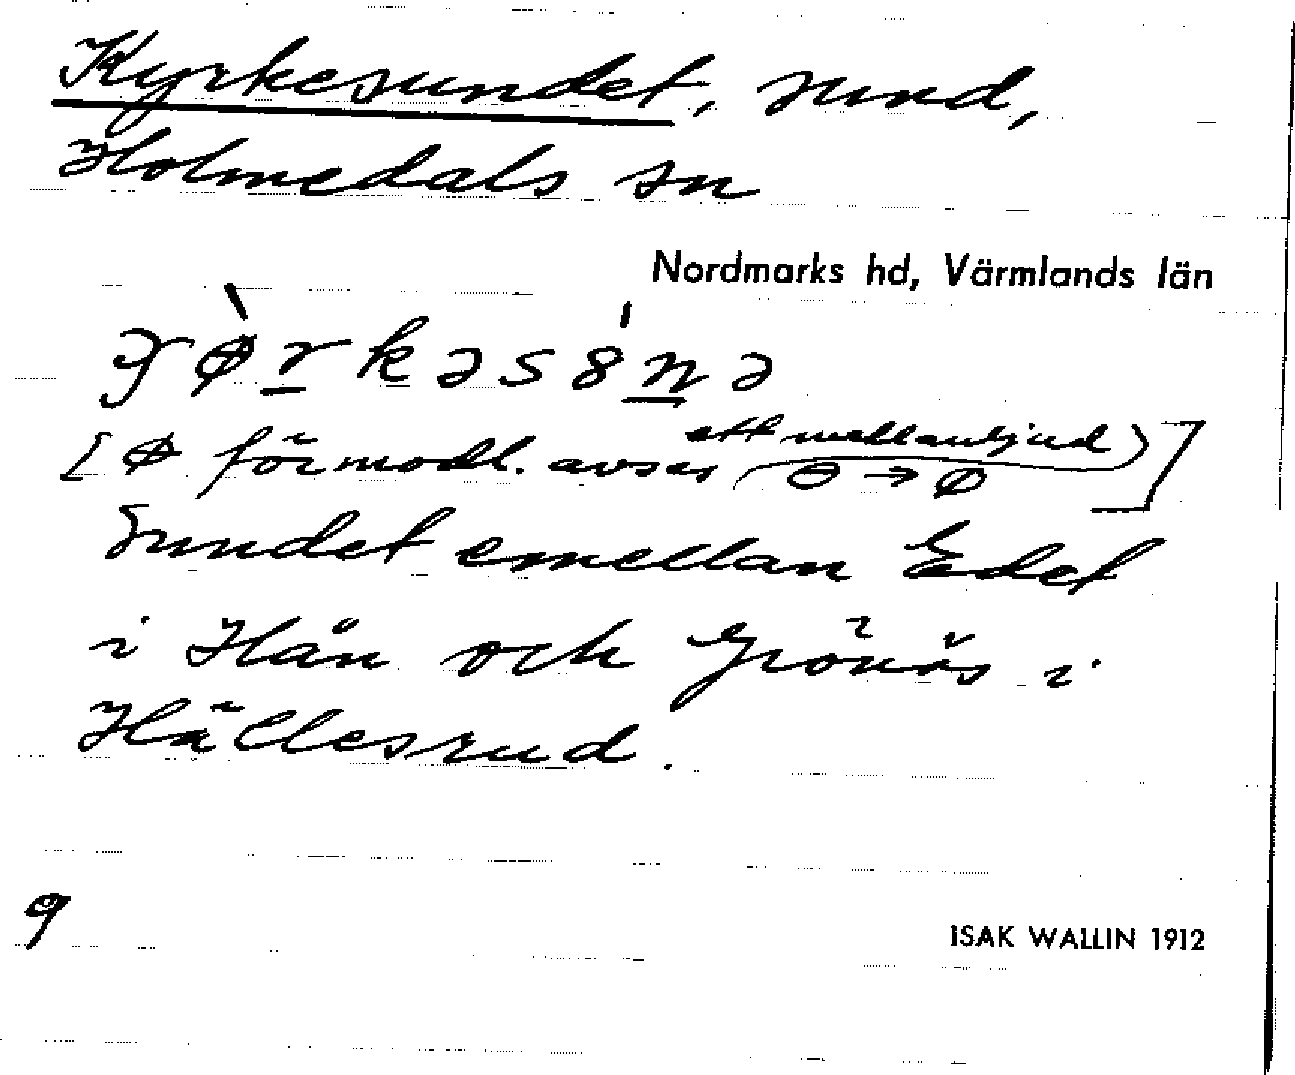 Kyrkesundet, sund,
Holmedals sn
Nordmarks hd, Värmlands län
[ø förmodl. avser ett mellanljud) ɵ → ø]
Sundet emellan Edet
i Hån och Grönös i
Hällesrud.
9
ISAK WALLIN 1912